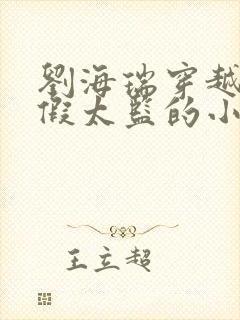 劉海瑞穿越
假太監的小
王立超